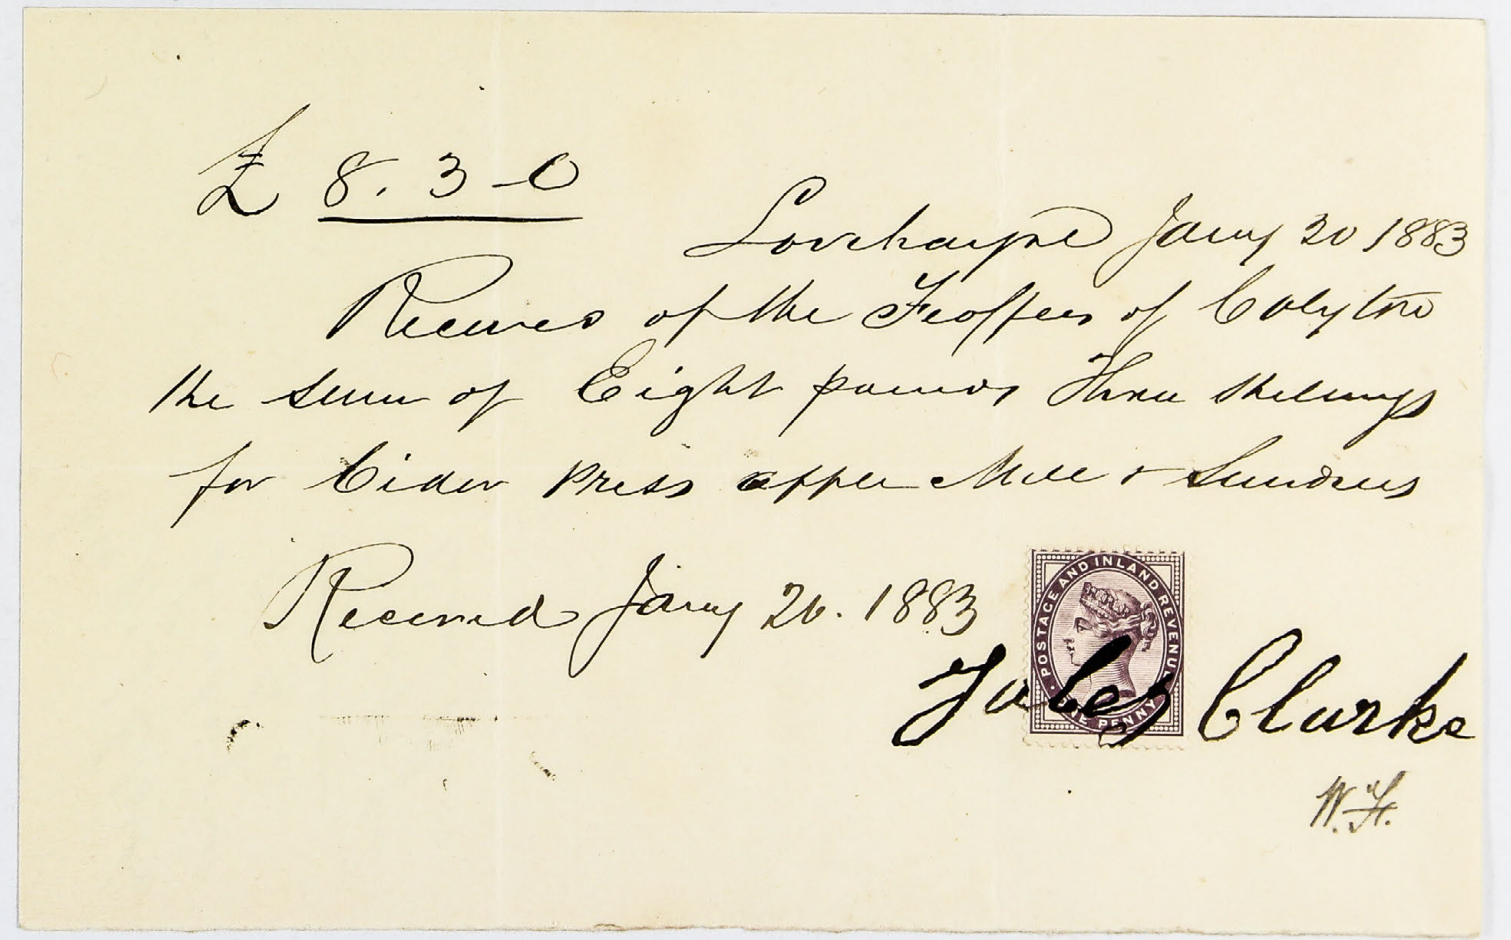 £ 8. 3 - 0
Lovehayne Jany 20 1883
Received of the Feoffees of Colyton
the sum of Eight pounds Three Shillings
for Cider Press apple Mill & Sundries
Received Jany 20. 1883
POSTAGE AND INLAND REVENUE
ONE PENNY
Jabez Clarke
W.H.